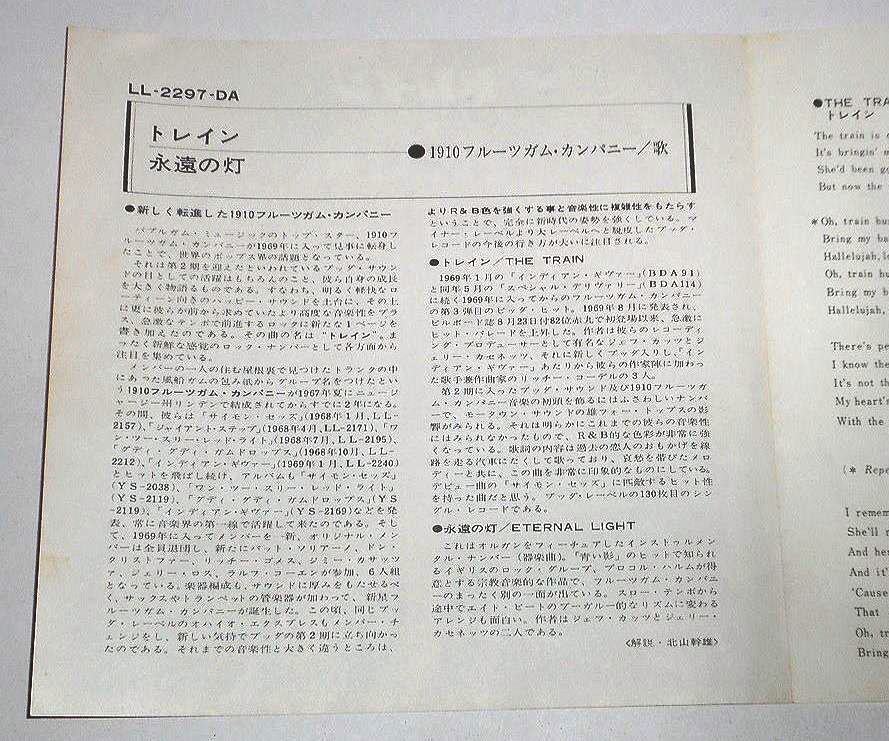 LL-2297-DA
トレイン
永遠の灯
●1910フルーツガム・カンパニー/歌
●新しく転進した1910フルーツガム・カンパニー
バブルガム・ミュージックのトップ・スター、1910フ
ルーツガム・カンパニーが1969年に入って見事に転身し
たことで、世界のポップス界の話題となっている。
それは第2期を迎えたといわれているブッダ・サウン
ドの目としての活躍はもちろんのこと、彼ら自身の成長
を大きく物語るものである。すなわち、明るく軽快なロ
ーティーン向きのハッピー・サウンドを土台に、その上
に更に彼らが前から求めていたより高度な音楽性をプラ
ス、急激なテンポで前進するロックに新たな1ページを
書き加えたのである。その曲の名は"トレイン"。ま
ったく新鮮な感覚のロック・ナンバーとして各方面から
注目を集めている。
メンバーの一人の住む屋根裏で見つけたトランクの中
にあった風船ガムの包み紙からグループ名をつけたとい
う1910フルーツガム・カンパニーが1967年夏にニュージ
ャージー州リンデンで結成されてからすでに2年になる。
その間、彼らは「サイモン・セッズ」(1968年1月、LL-
2157)、「ジャイアント・ステップ」(1968年4月、LL-2171)、「ワ
ン・ツー・スリー・レッド・ライト」(1968年7月、LL-2195)、
「グディ・グディ・ガムドロップス」(1968年10月、LL-
2212)、「インディアン・ギヴァー」(1969年1月、LL-2240)
とヒットを飛ばし続け、アルバムも「サイモン・セッズ」
(YS-2038)、「ワン・ツー・スリー・レッド・ライト」
(YS-2119)、「グディ・グディ・ガムドロップス」(YS
-2119)、「インディアン・ギヴァー」(YS-2169)などを発
表、常に音楽界の第一線で活躍して来たのである。そし
て、1969年に入ってメンバーを一新、オリジナル・メン
バーは全員退団し、新たにパット・ソリアーノ、ドン・
クリストファー、リッチー・ゴメス、ジミー・カサッツ
ァ、ジェリー・ロス、ラルフ・コーエンが参加、6人組
となっている。楽器編成も、サウンドに厚みをもたせるべ
く、サックスやトランペットの管楽器が加わって、新星フ
ルーツガム・カンパニーが誕生した。この頃、同じブッ
ダ・レーベルのオハイオ・エクスプレスもメンバー・チ
ェンジをし、新しい気持でブッダの第2期に立ち向かっ
たのである。それまでの音楽性と大きく違うところは、
よりR&B色を強くする事と音楽性に複雑性をもたらす
ということで、完全に新時代の姿勢を強くしている。マ
イナー・レーベルより大レーベルへと脱皮したブッダ・
レコードの今後の行き方が大いに注目される。
●トレイン/THE TRAIN
1969年1月の「インディアン・ギヴァー」(BDA91)
と同年5月の「スペシャル・デリヴァリー」(BDA114)
に続く1969年に入ってからのフルーツガム・カンパニー
の第3弾目のビッグ・ヒット。1969年8月に発表され、
ビルボード誌8月23日付82位赤丸で初登場以来、急激に
ヒット・パレードを上昇した。作者は彼らのレコーディ
ング・プロデューサーとして有名なジェフ・カッツとジ
ェリー・カセネッツ、それに新しくブッダ入りし、「イン
ディアン・ギヴァー」あたりから彼らの作家陣に加わっ
た歌手兼作曲家のリッチー・コーデルの3人。
第2期に入ったブッダ・サウンド及び1910フルーツガ
ム・カンパニー音楽の初頭を飾るにはふさわしいナンバ
ーで、モータウン・サウンドの雄フォー・トップスの影
響がみられる。それは明らかにこれまでの彼らの音楽性
にはみられなかったもので、R&B的な色彩が非常に強
くなっている。歌詞の内容は過去の恋人のおもかげを線
路を走る汽車にたくして歌っており、哀愁を帯びたメロ
ディーと共に、この曲を非常に印象的なものにしている。
デビュー曲の「サイモン・セッズ」に匹敵するヒット性
を持った曲だと思う。ブッダ・レーベルの130枚目のシン
グル・レコードである。
●永遠の灯/ETERNAL LIGHT
これはオルガンをフィーチュアしたインストゥルメン
タル・ナンバー(器楽曲)。「青い影」のヒットで知られ
るイギリスのロック・グループ、プロコル・ハルムが得
意とする宗教音楽的な作品で、フルーツガム・カンパニ
ーのまったく別の一面が出ている。スロー・テンポから
途中でエイト・ビートのブーガルー的なリズムに変わる
アレンジも面白い。作者はジェフ・カッツとジェリー・
カセネッツの二人である。
<解説・北山幹雄>
●THE TRA
トレイン
The train is
It's bringin'
She'd been
But now the
*Oh, train
Bring my
Hallelujah,
Oh, train
Bring my
Hallelujah,
There's
I know the
It's not
My heart's
With the
(* Repe
I remem
She'll
And
And it'
'Cause
That
Oh,
Bring